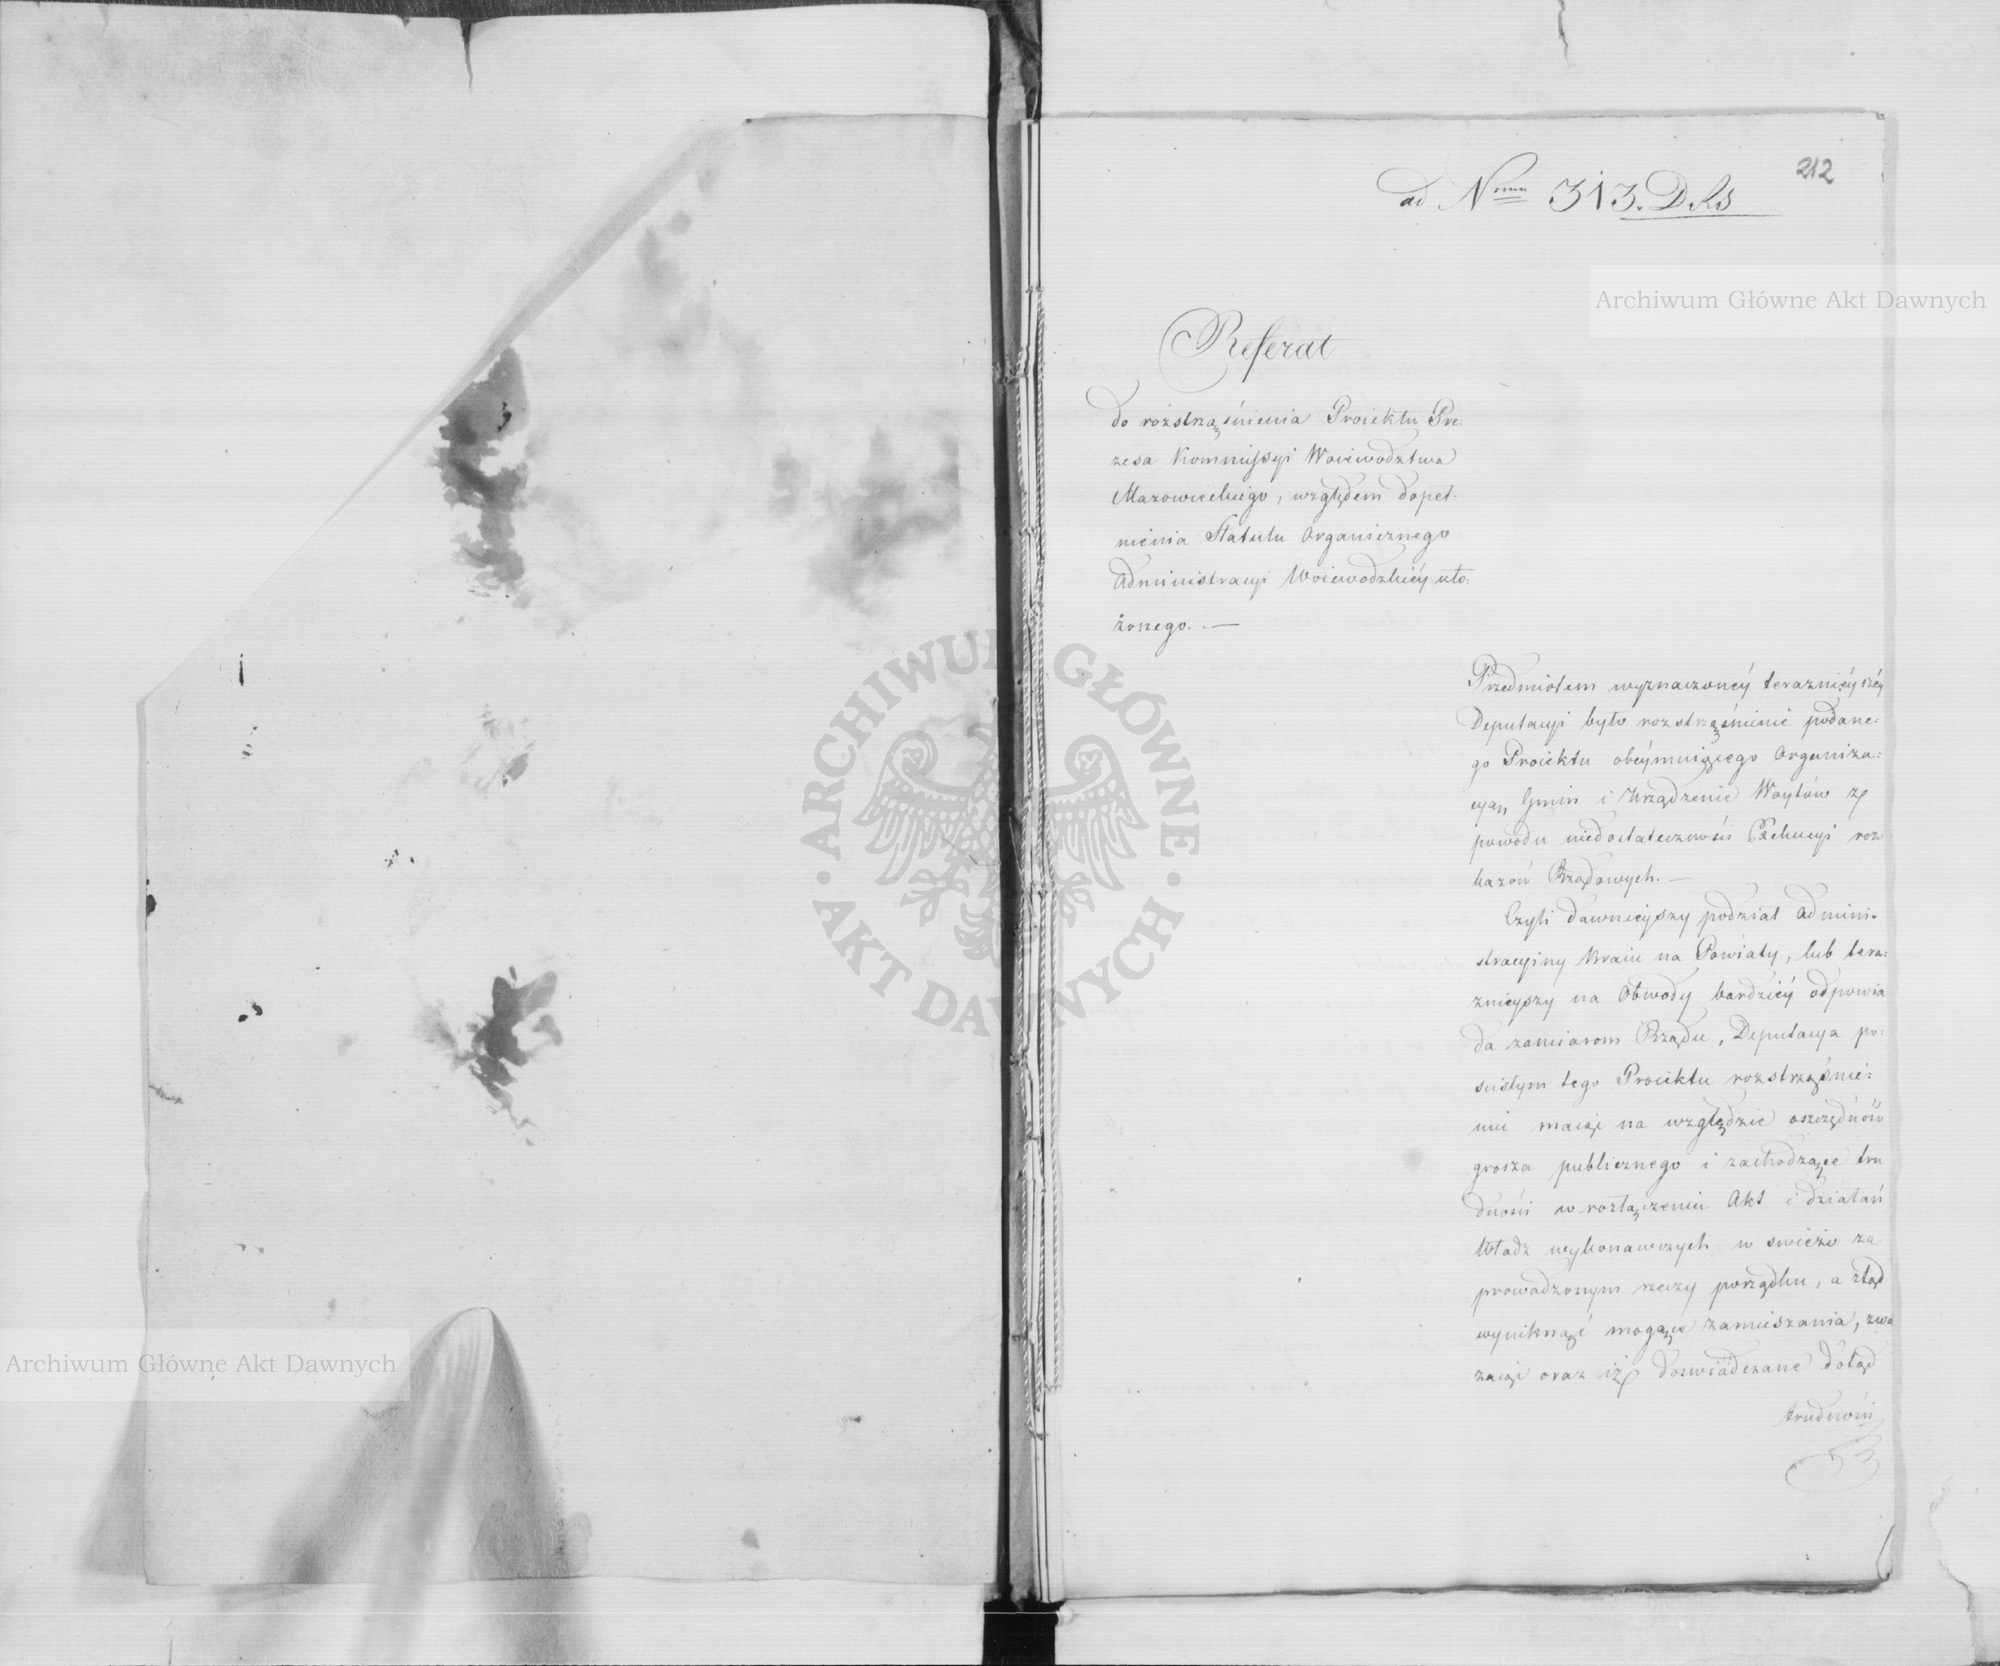 212
ad Nrum 313. D.Rs
Referat
do rozstrząśnienia Proiektu Pre:
zesa Kommissyi Woiewodztwa
Mazowieckiego, względem dopeł:
nienia Statutu Organicznego
Administracyi Woiewodzkiéy uło:
żonego. —
Przedmiotem wyznaczonéy teraznieyszéy
Deputacyi było rozstrząśnienie podane:
go Proiektu obéymuiącego Organiza:
cyą Gmin i Urządzenie Woytów z
powodu niedostateczności Exekucyi roz:
kazów Rządowych. —
Czyli dawnieyszy podział Admini:
stracyiny Kraiu na Powiaty, lub tera:
znieyszy na Obwody bardziéy odpowia
da zamiarom Rządu, Deputacya po:
scisłym tego Proiektu rozstrząśnie:
niu maiąc na względzie oszczędność
grosza publicznego i zachodzące tru
dności w rozłączeniu Akt i działań
Władz wykonawczych w swieżo za
prowadzonym rzeczy porządku, a ztąd
wyniknąć mogące zamieszania, zwa
żaiąc oraz iż doswiadczane dotąd
trudności
Archiwum Główne Akt Dawnych
Archiwum Główne Akt Dawnych
ARCHIWUM GŁÓWNE
AKT DAWNYCH